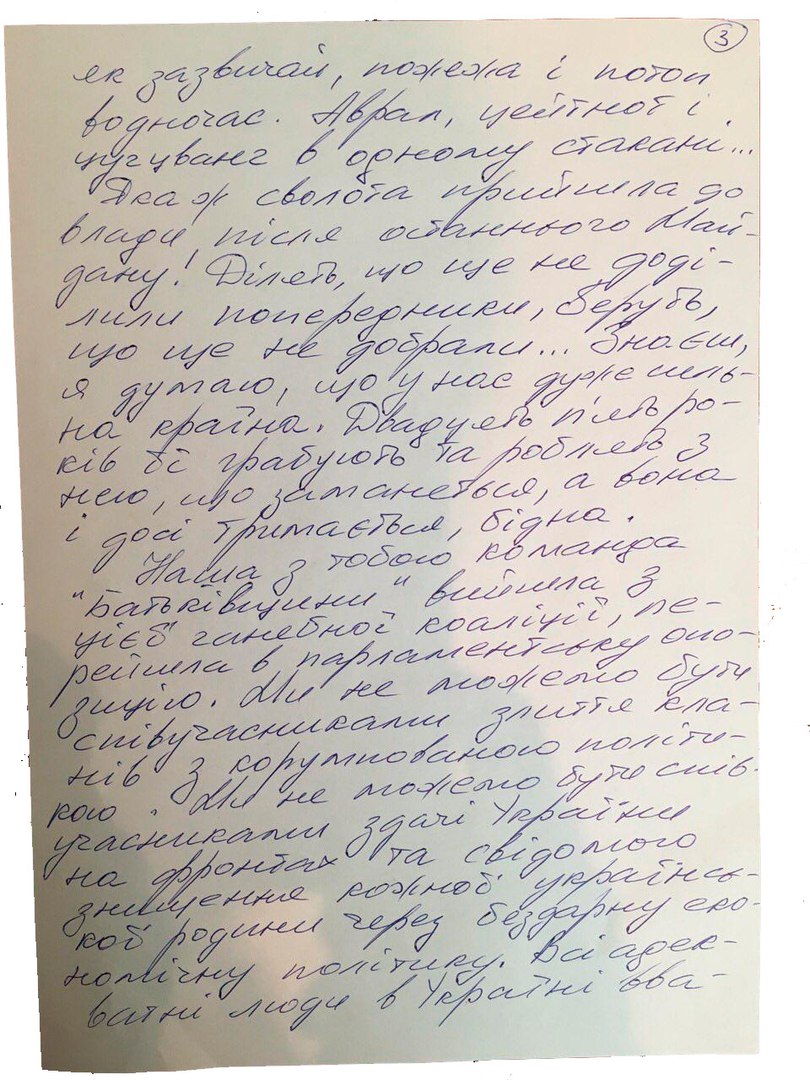 3
як зазвичай, пожежа і потоп
водночас. Аврал, цейтнот і
цугцванг в одному стакані...
Яка ж сволота прийшла до
влади після останнього Май-
дану! Ділять, що ще не доді-
лили попередники, беруть,
що ще не добрали... Знаєш,
я думаю, що у нас дуже силь-
на країна. Двадцять п'ять ро-
ків її грабують та роблять з
нею, що заманеться, а вона
і досі тримається, бідна.
Наша з тобою команда
"Батьківщини" вийшла з
цієї ганебної коаліції, пе-
рейшла в парламентську опо-
зицію. Ми не можемо бути
співучасниками злиття кла-
нів з корумпованою політи-
кою. Ми не можемо бути спів-
учасниками здачі України
на фронтах та свідомого
знищення кожної українсь-
кої родини через бездарну еко-
номічну політику. Всі адек-
ватні люди в Україні вва-